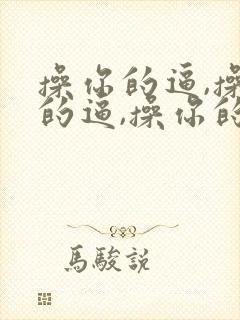 操你的逼,操
的逼,操你的
馬駿説